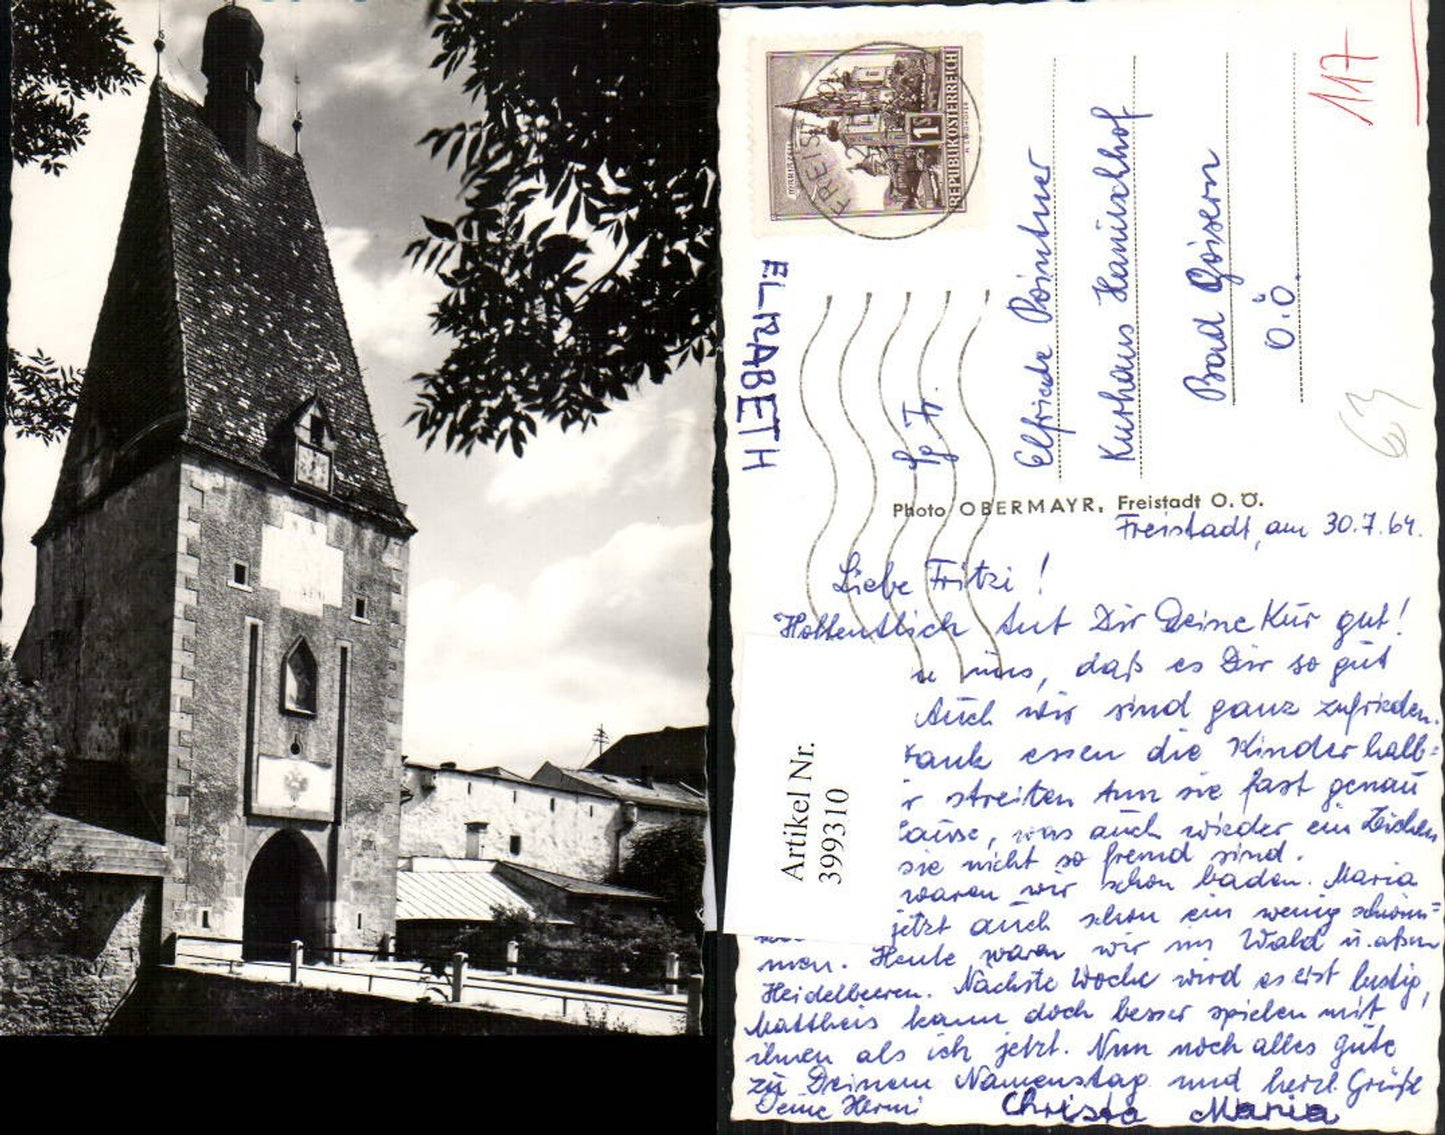 117
REPUBLIK ÖSTERREICH
1S
FREIST
ELISABETH
Fr.
Elfriede Pointner
Kurhaus Hanuschhof
Bad Goisern
O.Ö.
63
Photo OBERMAYR, Freistadt O. Ö.
Freistadt, am 30.7.64.
Liebe Fritzi!
Hoffentlich tut Dir Deine Kur gut!
uns, daß es Dir so gut
Auch wir sind ganz zufrieden.
essen die Kinder halb=
streiten tun sie fast genau
ause, was auch wieder ein Zeichen
sie nicht so fremd sind.
waren wir schon baden. Maria
jetzt auch schon ein wenig schwim=
men. Heute waren wir im Wald u. aßen
Heidelbeeren. Nächste Woche wird es erst lustig,
Mattheis kann doch besser spielen mit
ihnen als ich jetzt. Nun noch alles Gute
zu Deinem Namenstag und herzl. Grüße
Deine Hermi Christa Maria
Artikel Nr.
399310